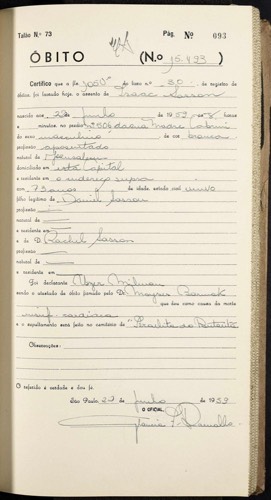 Talão N.º 73 Pág. Nº 693
ÓBITO (N.º 15.493)
Certifico que a fls. 300vº do livro n.º 30 de registro de
óbitos foi lavrado hoje, o assento de Isaac Sasson
falecido aos 22 de junho de 1959 às 8 horas
e minutos no prédio nº 506 da rua
sexo masculino de cor branca
profissão aposentado
natural de Jerusalem
domiciliado em esta Capital
e residente em o endereço supra
com 73 anos de idade, estado civil viuvo
filho legítimo de Daniel Sasson
profissão
natural de
e residente em
e de D. Rachel Sasson
profissão
natural de
e residente em
Foi declarante
sendo o atestado de óbito firmado pelo Dr. Moyses
que deu como causa da morte
insuf. cardiaca
e o sepultamento será feito no cemitério de Israelita do Butantã
Observações:
O referido é verdade e dou fé.
São Paulo, 22 de junho de 1959
O OFICIAL,